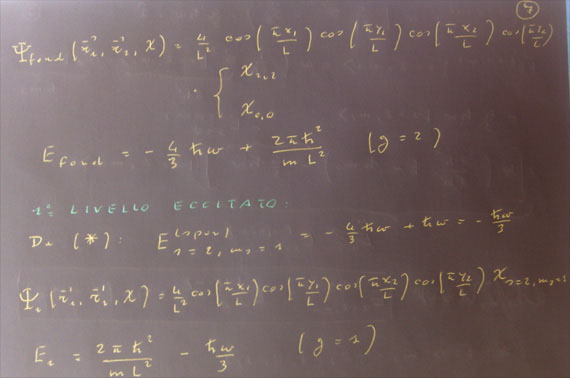 4
Ψfond (r⃗₁, r⃗₂, χ) = 4/L² cos(πx₁/L) cos(πy₁/L) cos(πx₂/L) cos(πy₂/L)
· { χ₂,₂
χ₀,₀
E fond = - 4/3 ħω + 2πħ²/mL² (g = 2)
1° LIVELLO ECCITATO:
Da (*): E^(spor)_s=2, ms=1 = - 4/3 ħω + ħω = - ħω/3
Ψ₁ (r⃗₁, r⃗₂, χ) = 4/L² cos(πx₁/L) cos(πy₁/L) cos(πx₂/L) cos(πy₂/L) χ s=2, ms=1
E₁ = 2πħ²/mL² - ħω/3 (g = 1)